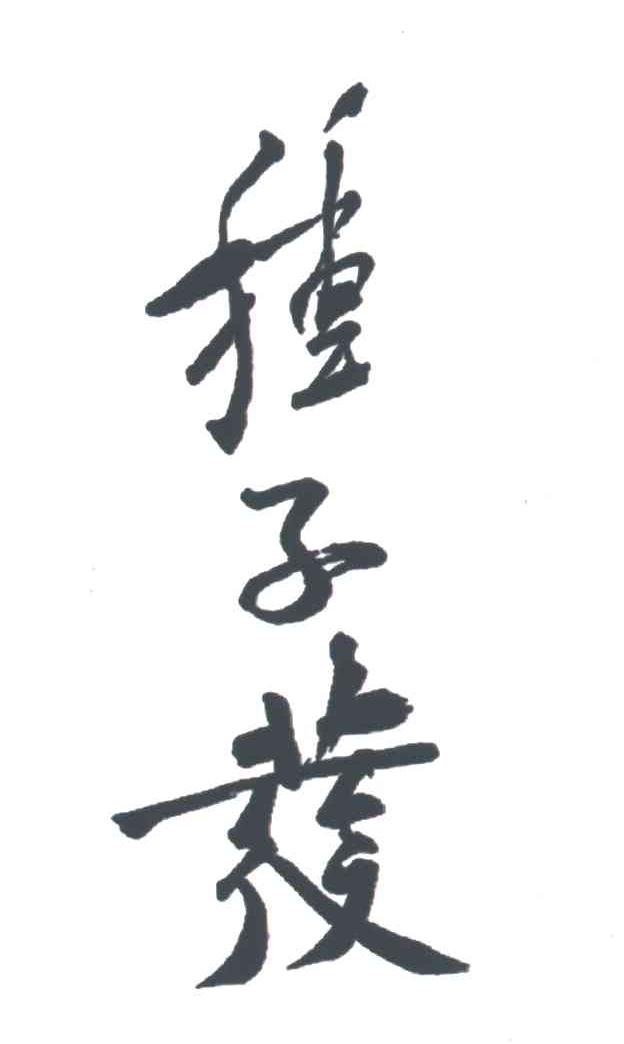 種子發